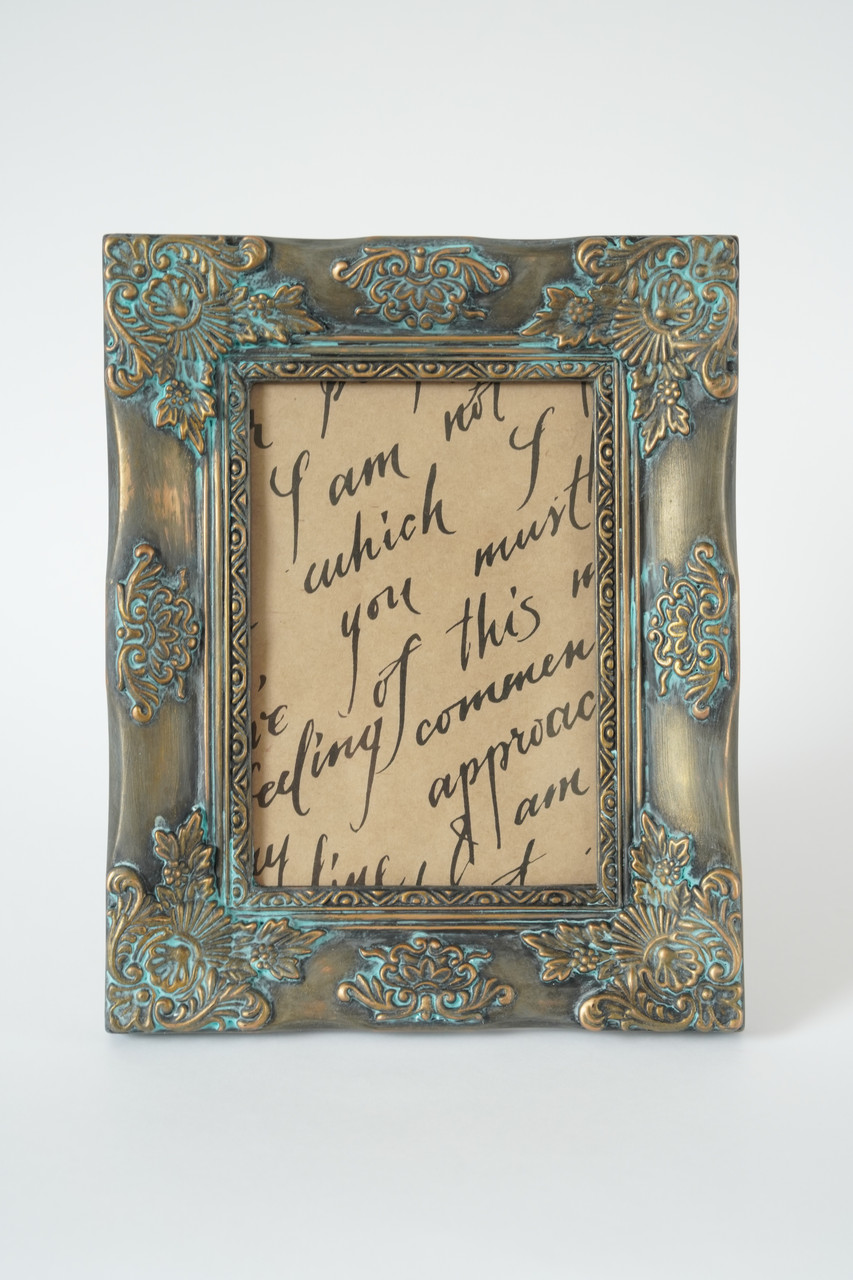 not
I am I
which
you must
of this
feeling commen
approac
I am